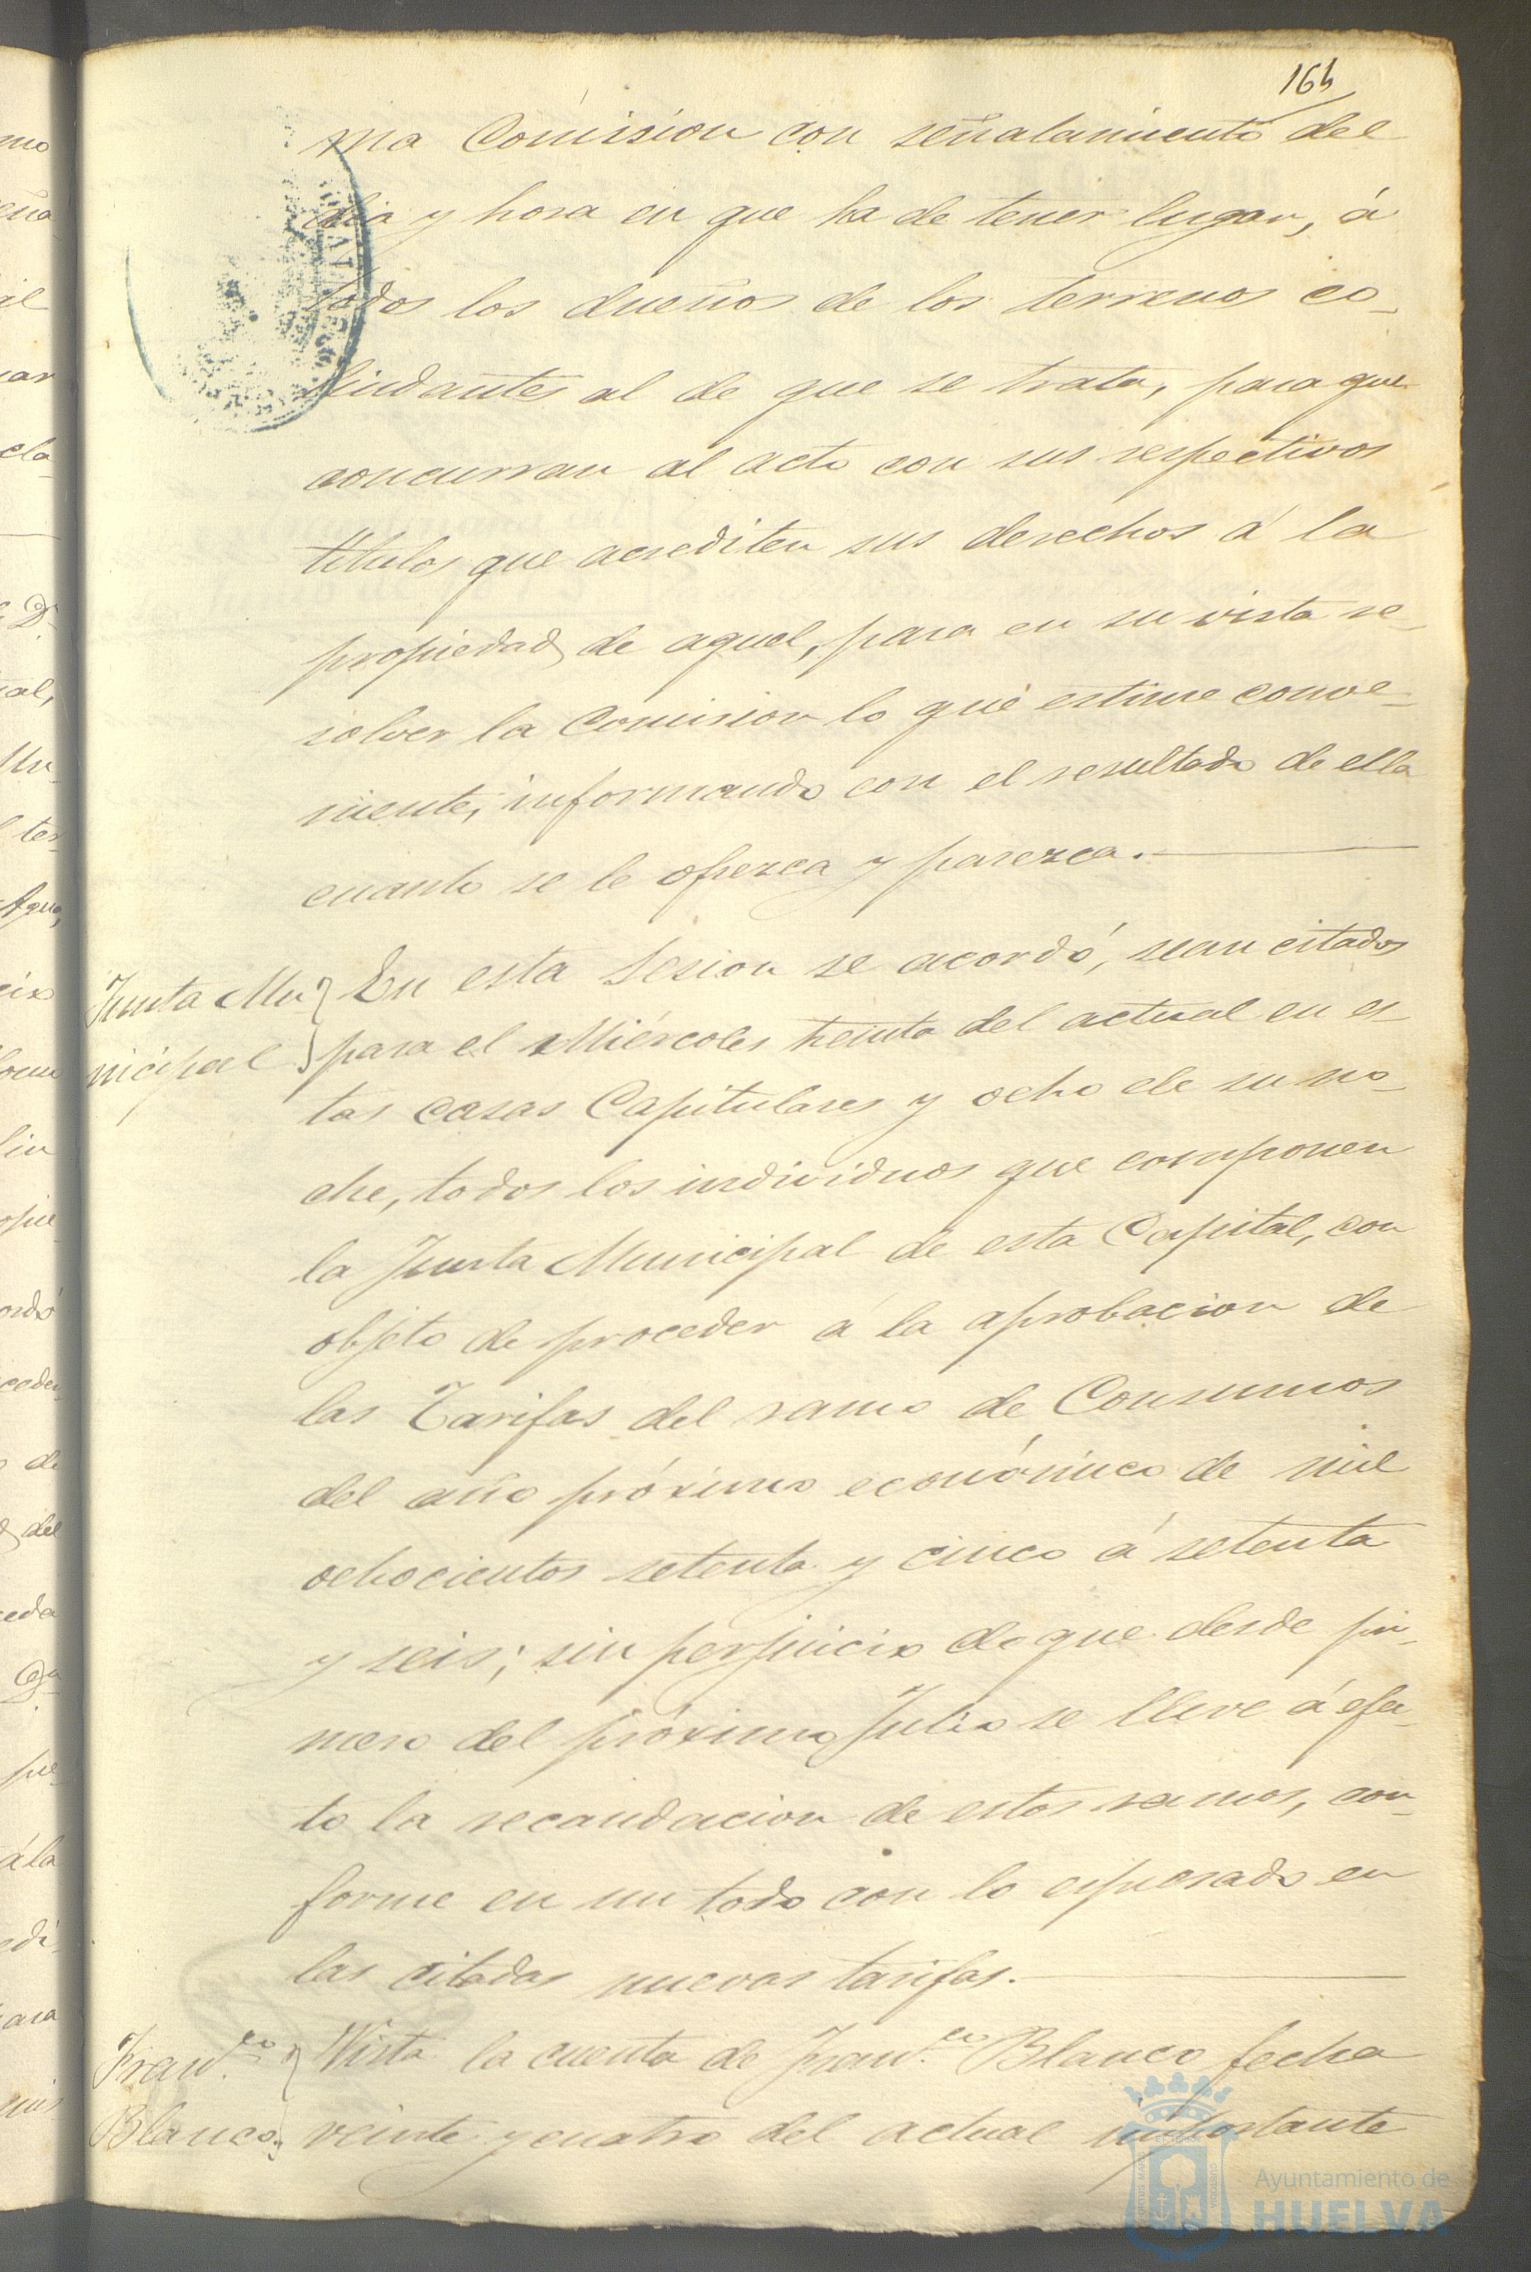 164
ma Comision con señalamiento del
dia y hora en que ha de tener lugar, á
todos los dueños de los terrenos co-
lindantes al de que se trata, para que
concurran al acto con sus respectivos
titulos que acrediten sus derechos á la
propiedad de aquel, para en su vista re-
solver la Comision lo que estime conve-
niente, informando con el resultado de ella
cuanto se le ofrezca y parezca.
Junta Mu-
nicipal
En esta Sesion se acordó, sean citados
para el Miércoles treinta del actual en es-
tas casas Capitulares y ocho de su no-
che, todos los individuos que componen
la Junta Municipal de esta Capital, con
objeto de proceder á la aprobacion de
las Tarifas del ramo de Consumos
del año próximo económico de mil
ochocientos setenta y cinco á setenta
y seis; sin perjuicio de que desde pri-
mero del próximo Julio se lleve á efec-
to la recaudacion de estos ramos, con-
forme en un todo con lo espresado en
las citadas nuevas tarifas.
Fran.co
Blanco
Vista la cuenta de Fran.co Blanco fecha
veinte y cuatro del actual importante
Ayuntamiento de
HUELVA